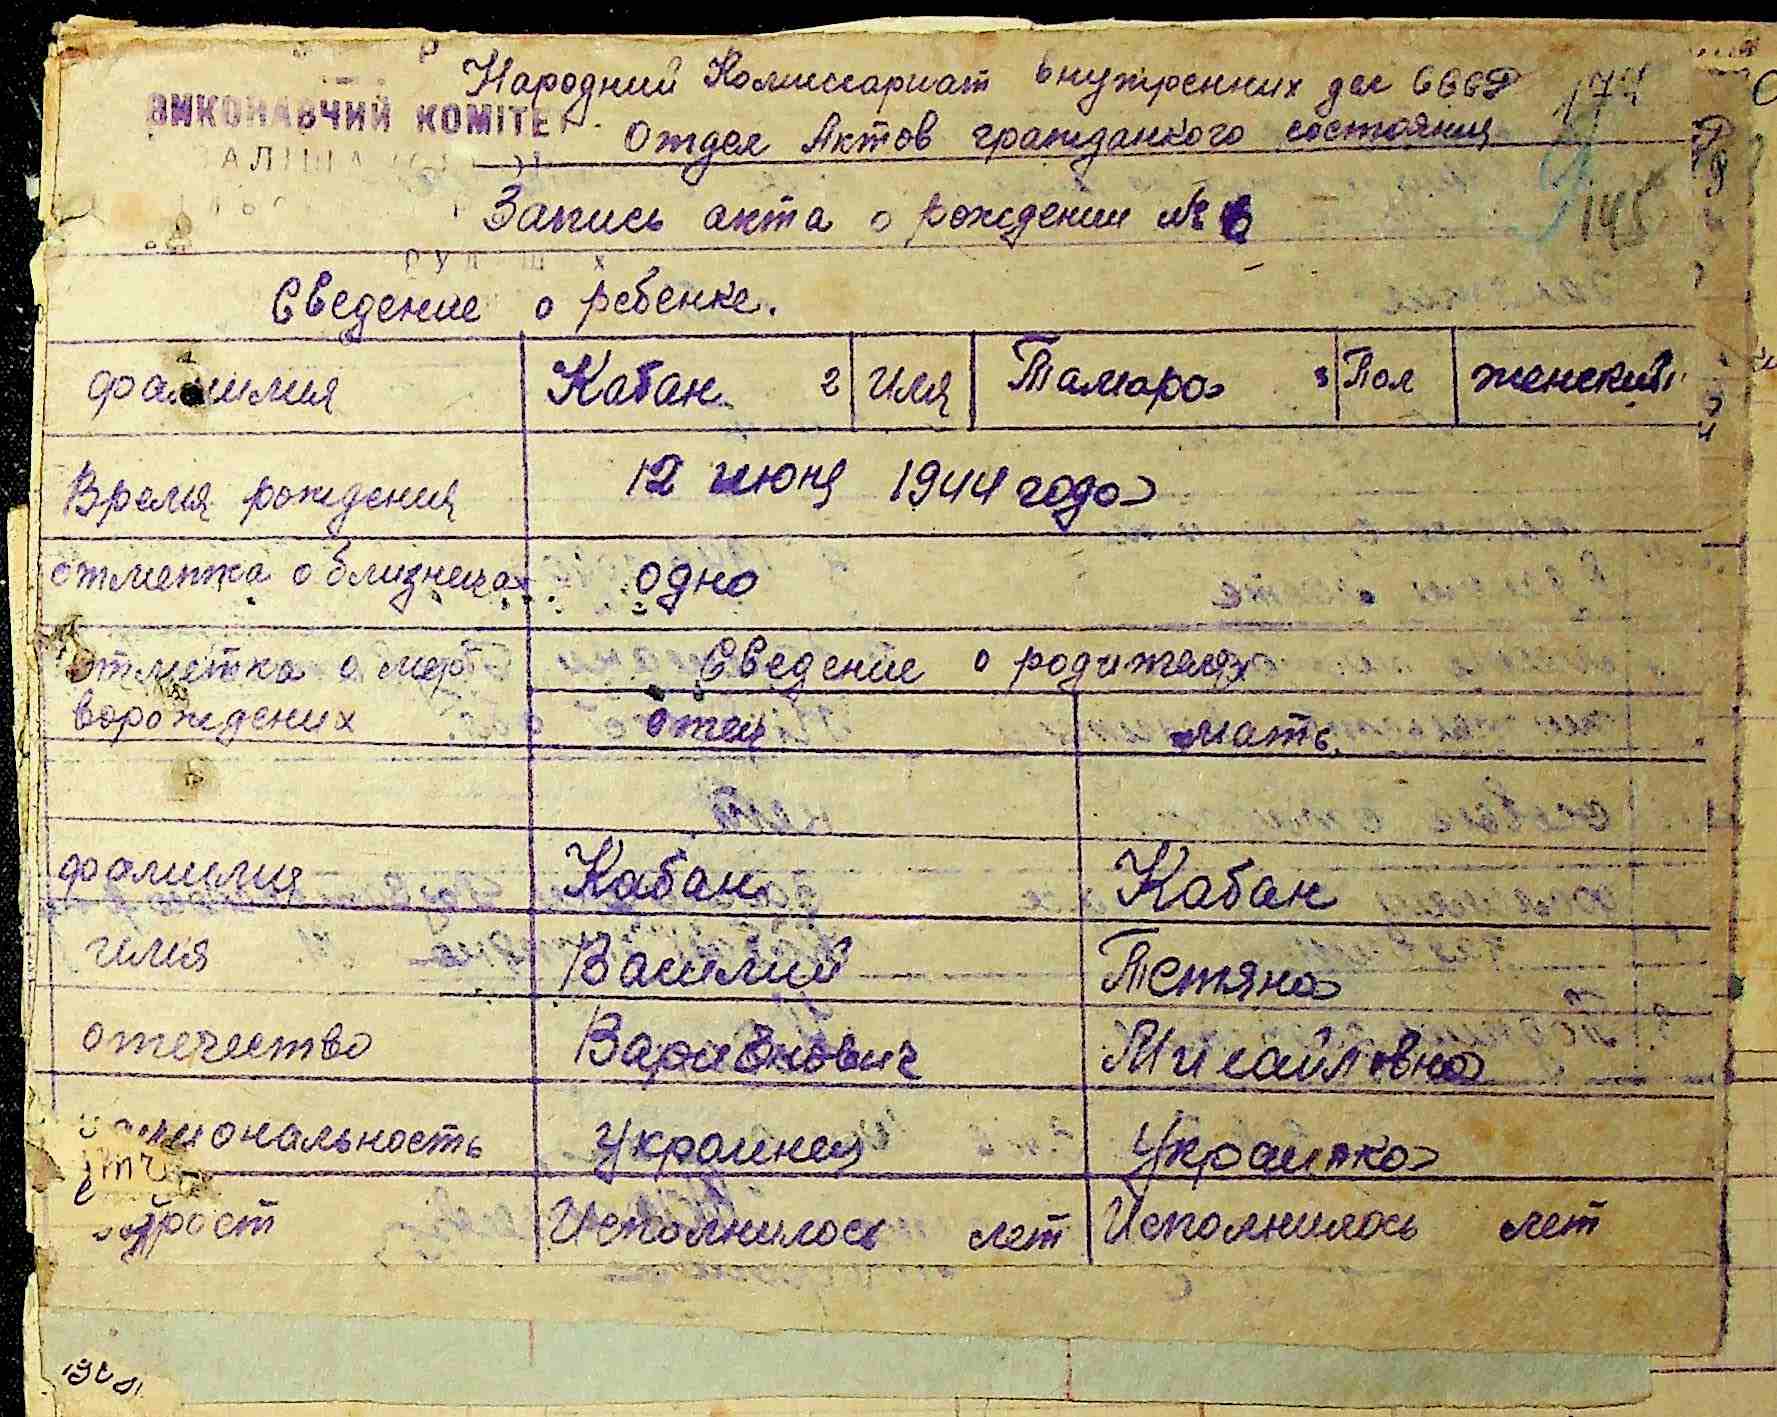 Народний Комиссариат внутренних дел СССР
174
ВИКОНАВЧИЙ КОМІТЕТ
отдел Актов гражданкого состояния
Запись акта о рождении № 6
145
Сведение о ребенке.
фамилия Кабан 2 Имя Тамара 3 Пол женский
Время рождения 12 июня 1944 года
отметка о близнецах одно
отметка о мерт Сведение о родителях
ворождених отец мать
фамилия Кабан Кабан
имя Василий Тетяна
отечество Варивнович Михайловна
национальность украинец украинка
Исполнилось лет Исполнилось лет